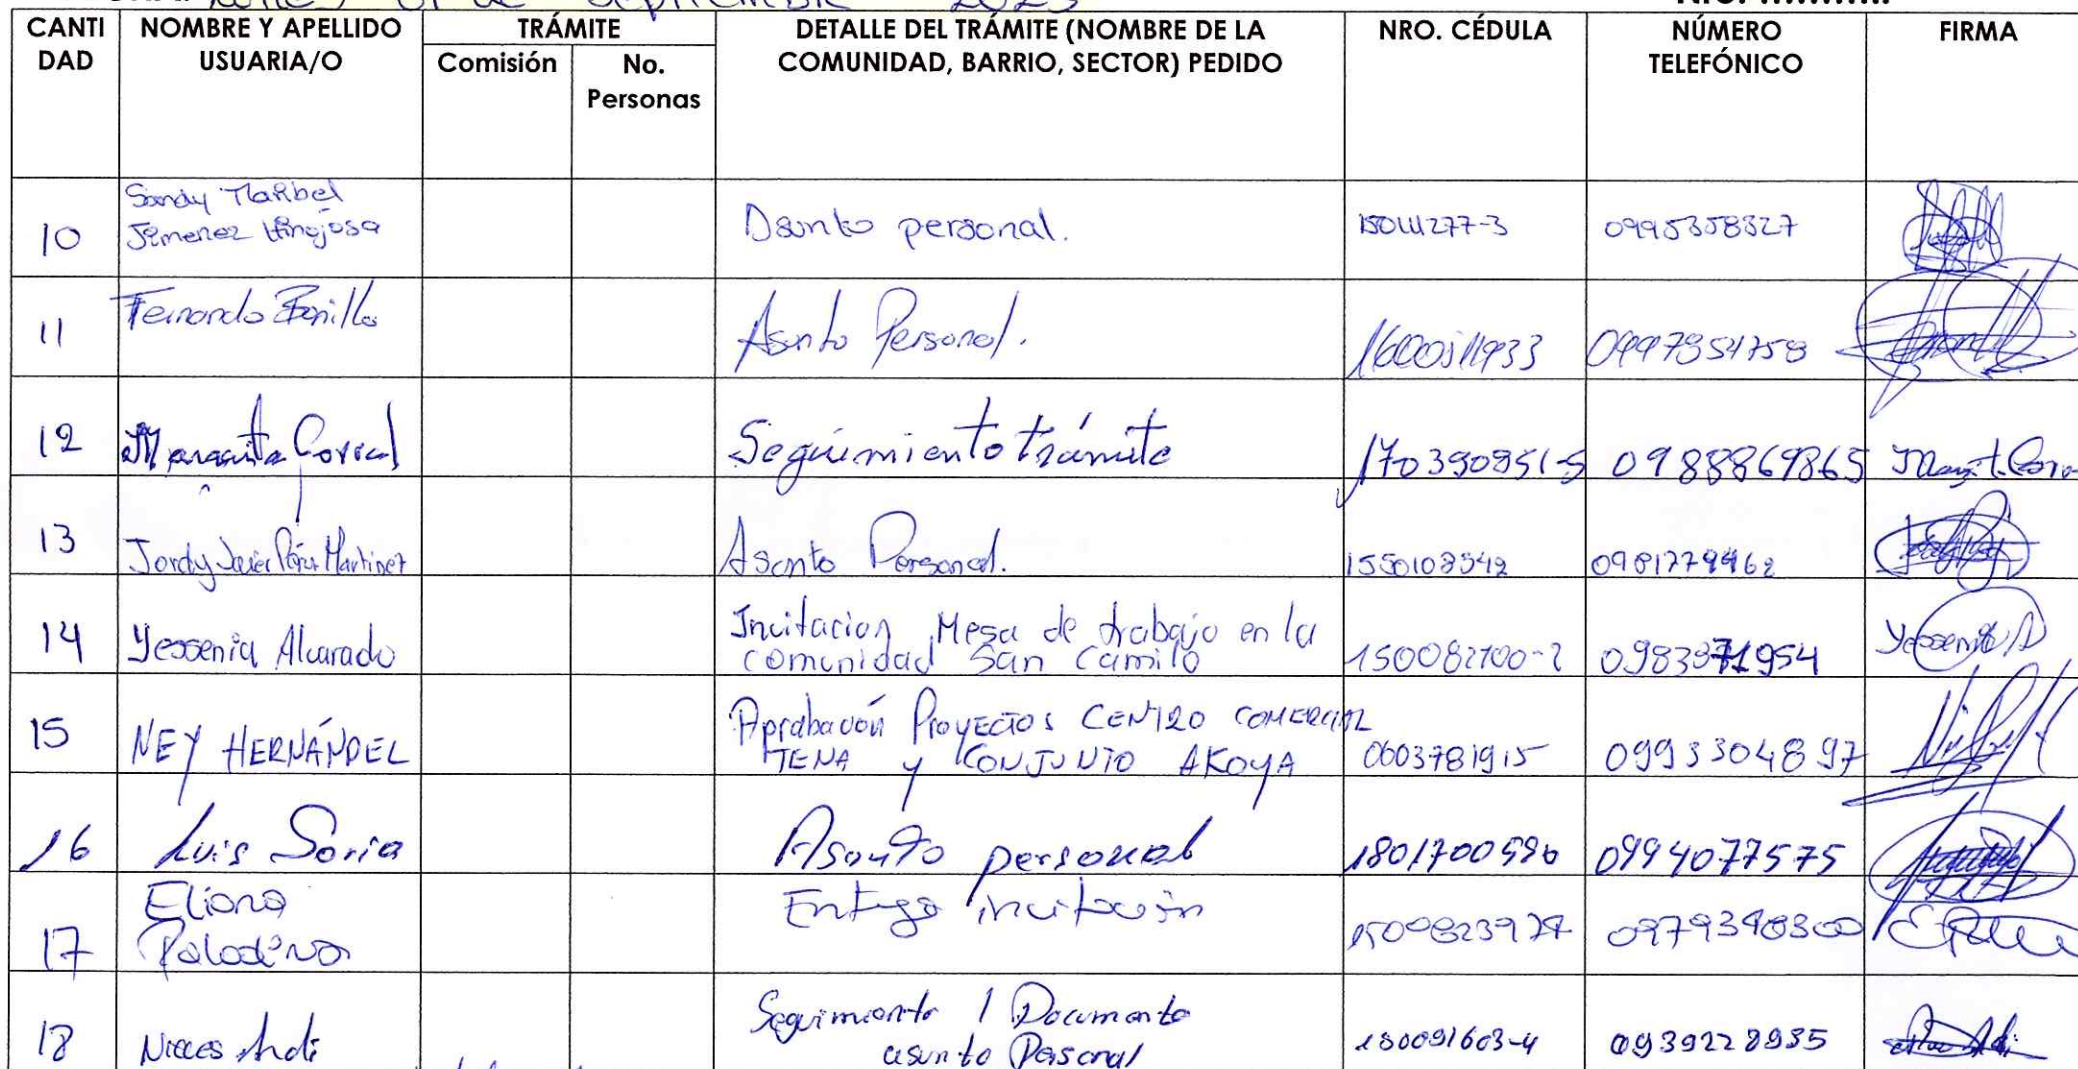 Lunes 01 de septiembre 2025
CANTI DAD NOMBRE Y APELLIDO USUARIA/O TRÁMITE DETALLE DEL TRÁMITE (NOMBRE DE LA COMUNIDAD, BARRIO, SECTOR) PEDIDO NRO. CÉDULA NÚMERO TELEFÓNICO FIRMA
Comisión No. Personas
10 Sandy Maribel Jimenez Hinojosa Asunto personal. 150111277-3 0995358327
11 Fernando Bonilla Asunto Personal. 0997954758
12 Margarita Corral Seguimiento trámite 170390951-5 0988869865
13 Jordy Javier Martinez Asunto Personal. 1550108342 0981779462
14 Yessenia Alvarado Invitacion Mesa de trabajo en la comunidad San Camilo 150082700-2 0983971954 Yessenia A
15 NEY HERNÁNDEZ Aprobación PROYECTOS CENTRO COMERCIAL TENA y CONJUNTO AKOYA 0603781915 0993304897
16 Luis Soria Asunto personal 1801700590 0994077575
17 Eliana Paladines Entrega invitación 0979340300
18 Nieves Andi Seguimiento 1 Documento asunto Personal 150091603-4 0939228935